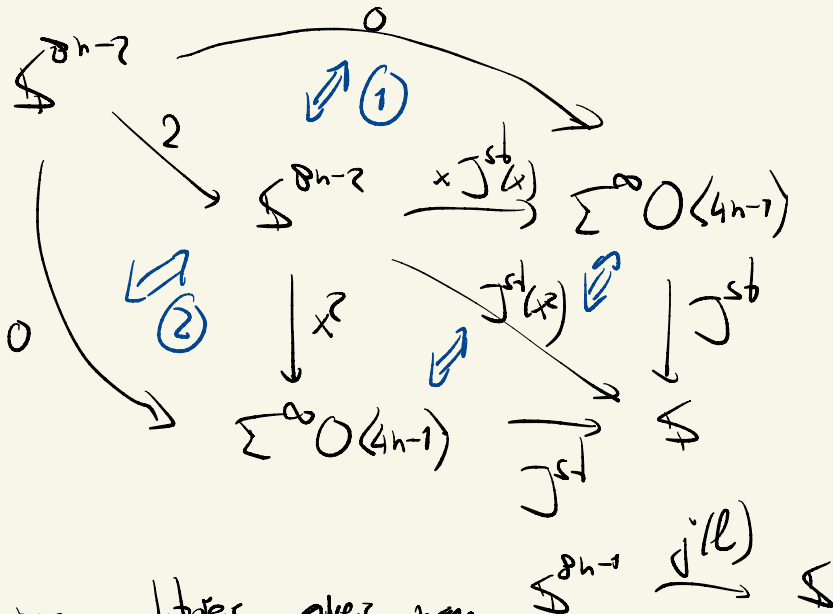 0
𝕊^{8n-2} ①
2
𝕊^{8n-2} x J^{st}(x) Σ^∞ O⟨4n-1⟩
② x² J^{st}(x²) J^{st}
0
Σ^∞ O⟨4n-1⟩ 𝕊
J^{st}
𝕊^{8n-1} j(l) 𝕊